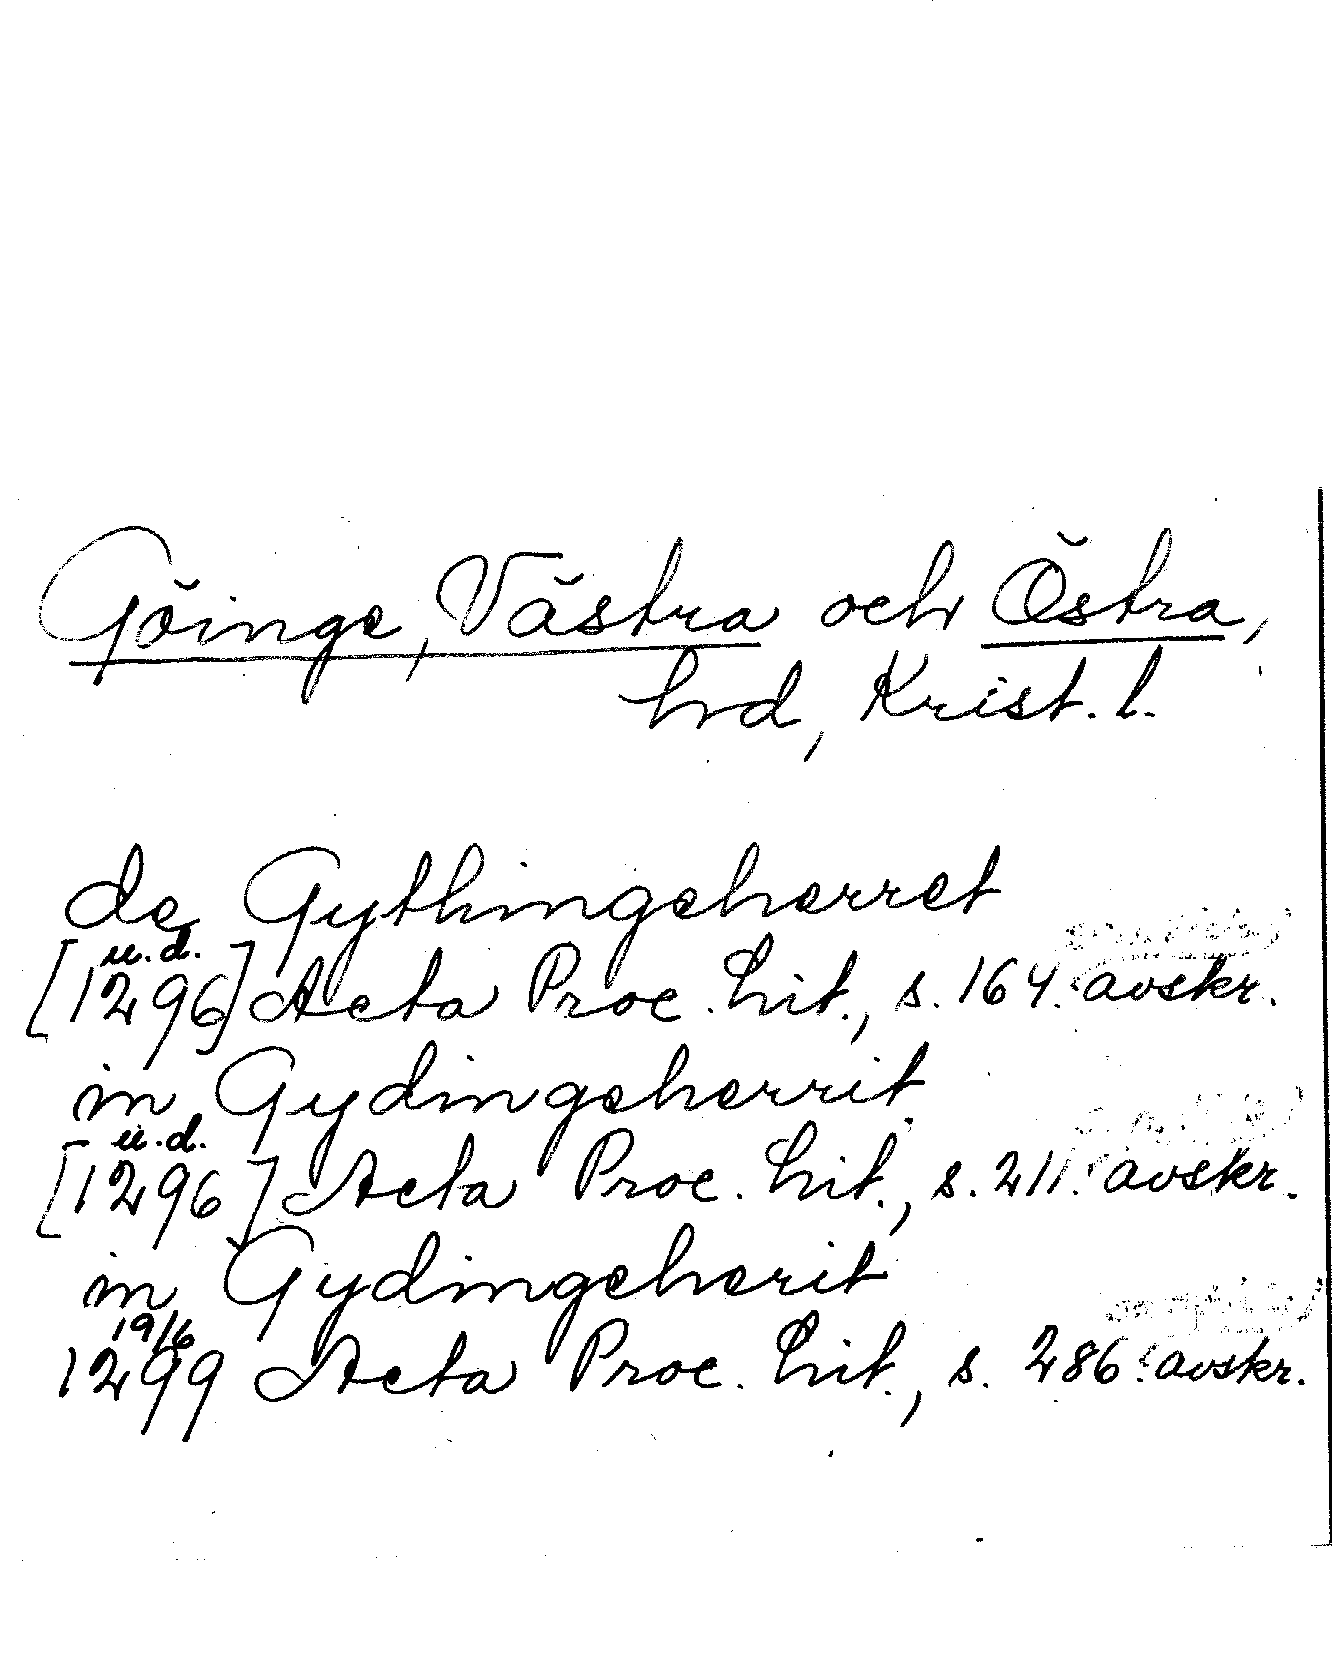 Göinge, Västra och Östra,
hrd, Krist. l.
de Gythingeherret
u.d.
[1296] Acta Proc. Lit., s. 164. avskr.
in Gydingeherrit
u.d.
[1296] Acta Proc. Lit., s. 211. avskr.
in Gydingeherit
19/6
1299 Acta Proc. Lit., s. 286. avskr.